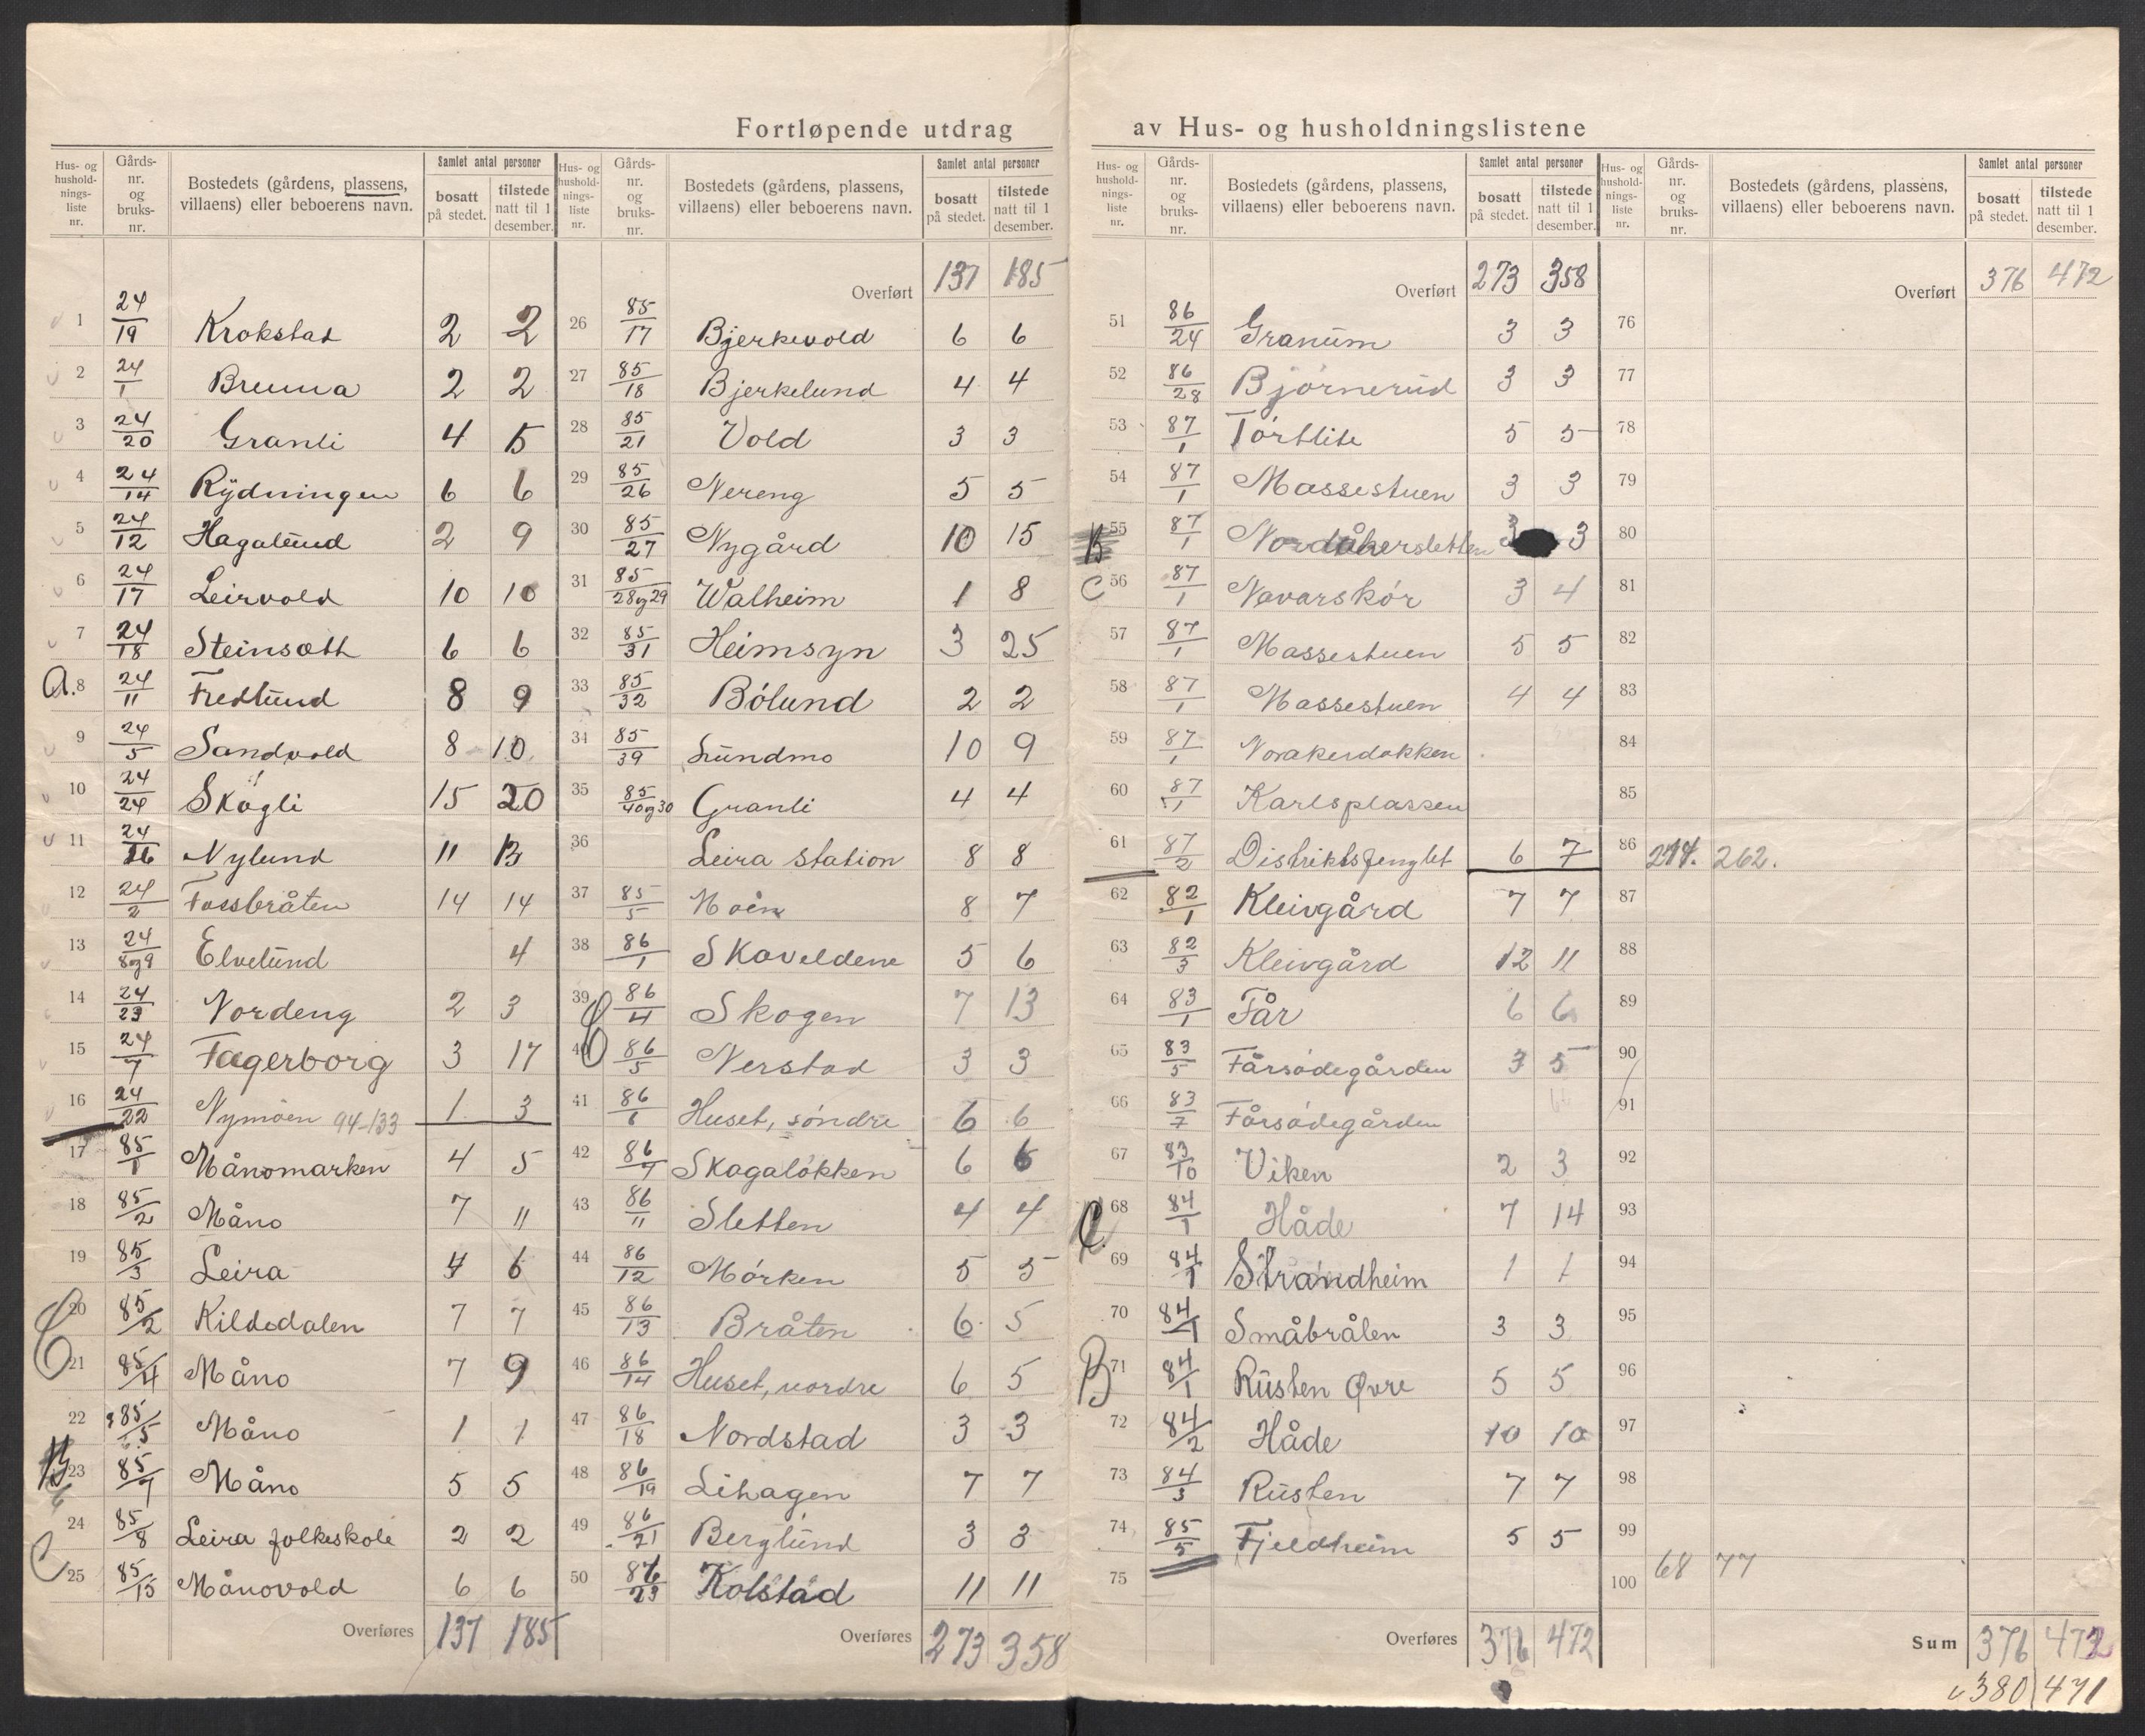 Fortløpende utdrag av Hus- og husholdningslistene
Hus- og hushold-nings-liste nr. | Gårds-nr. og bruks-nr. | Bostedets (gårdens, plassens, villaens) eller beboerens navn. | Samlet antal personer bosatt på stedet. | tilstede natt til 1 desember.
1 24/19 Krokstad 2 2
2 24/1 Bruua 2 2
3 24/20 Granli 4 5
4 24/14 Rydningen 6 6
5 24/12 Hagalund 2 9
6 24/17 Leirvold 10 10
7 24/18 Steinsætt 6 6
a. 8 24/11 Fredlund 8 9
9 24/5 Sandvold 8 10
10 24/24 Skogli 15 20
11 24/26 Nylund 11 13
12 24/2 Fossbråten 14 14
13 24/8og9 Elvelund 4
14 24/23 Nordeng 2 3
15 24/7 Fagerborg 3 17
16 24/22 Nymoen 94-133 1 3
17 85/1 Månomarken 4 5
18 85/2 Måno 7 11
19 85/3 Leira 4 6
C 20 85/2 Kildedalen 7 7
21 85/4 Måno 7 9
22 85/5 Måno 1 1
B 23 85/7 Måno 5 5
24 85/8 Leira folkeskole 2 2
C 25 85/15 Månovold 6 6
Overføres 137 185
Hus- og hushold-nings-liste nr. | Gårds-nr. og bruks-nr. | Bostedets (gårdens, plassens, villaens) eller beboerens navn. | Samlet antal personer bosatt på stedet. | tilstede natt til 1 desember.
Overført 137 185
26 85/17 Bjerkevold 6 6
27 85/18 Bjerkelund 4 4
28 85/21 Vold 3 3
29 85/26 Nereng 5 5
30 85/27 Nygård 10 15
31 85/28og29 Walheim 1 8
32 85/31 Heimsyn 3 25
33 85/32 Bólund 2 2
34 85/39 Lundmo 10 9
35 85/40og30 Granli 4 4
36 Leira station 8 8
37 85/5 Moen 8 7
38 86/1 Skaveldene 5 6
39 86/4 Skogen 7 13
40 86/5 Nerstad 3 3
41 86/6 Huset, søndre 6 6
42 86/7 Skagaløkken 6 6
43 86/11 Sletten 4 4
44 86/12 Mórken 5 5
45 86/13 Bråten 6 5
46 86/14 Huset, nordre 6 5
47 86/18 Nordstad 3 3
48 86/19 Lihagen 7 7
49 86/21 Berglund 3 3
50 86/23 Kolstad 11 11
Overføres 273 358
Hus- og hushold-nings-liste nr. | Gårds-nr. og bruks-nr. | Bostedets (gårdens, plassens, villaens) eller beboerens navn. | Samlet antal personer bosatt på stedet. | tilstede natt til 1 desember.
Overført 273 358
51 86/24 Granum 3 3
52 86/28 Bjórnerud 3 3
53 87/1 Tórtlite 5 5
54 87/1 Massestuen 3 3
B 55 87/1 Nordåkersletten 3 3
C 56 87/1 Navarskór 3 4
57 87/1 Massestuen 5 5
58 87/1 Massestuen 4 4
59 87/1 Norakerdokken
60 87/1 Karlsplassen
61 87/2 Distriktsfenglet 6 7
62 82/1 Kleivgård 7 7
63 82/3 Kleivgård 12 11
64 83/1 Får 6 6
65 83/5 Fårsódegården 3 5
66 83/7 Fårsódegården
67 83/10 Viken 2 3
C. 68 84/1 Håde 7 14
69 84/1 Strandheim 1 1
70 84/1 Småbråten 3 3
B 71 84/1 Rusten Øvre 5 5
72 84/2 Håde 10 10
73 84/3 Rusten 7 7
74 85/5 Fjeldheim 5 5
75
Overføres 376 472
Hus- og hushold-nings-liste nr. | Gårds-nr. og bruks-nr. | Bostedets (gårdens, plassens, villaens) eller beboerens navn. | Samlet antal personer bosatt på stedet. | tilstede natt til 1 desember.
Overført 376 472
76
77
78
79
80
81
82
83
84
85
86 214. 262.
87
88
89
90
91
92
93
94
95
96
97
98
99
100 68 77
Sum 376 472
380 471